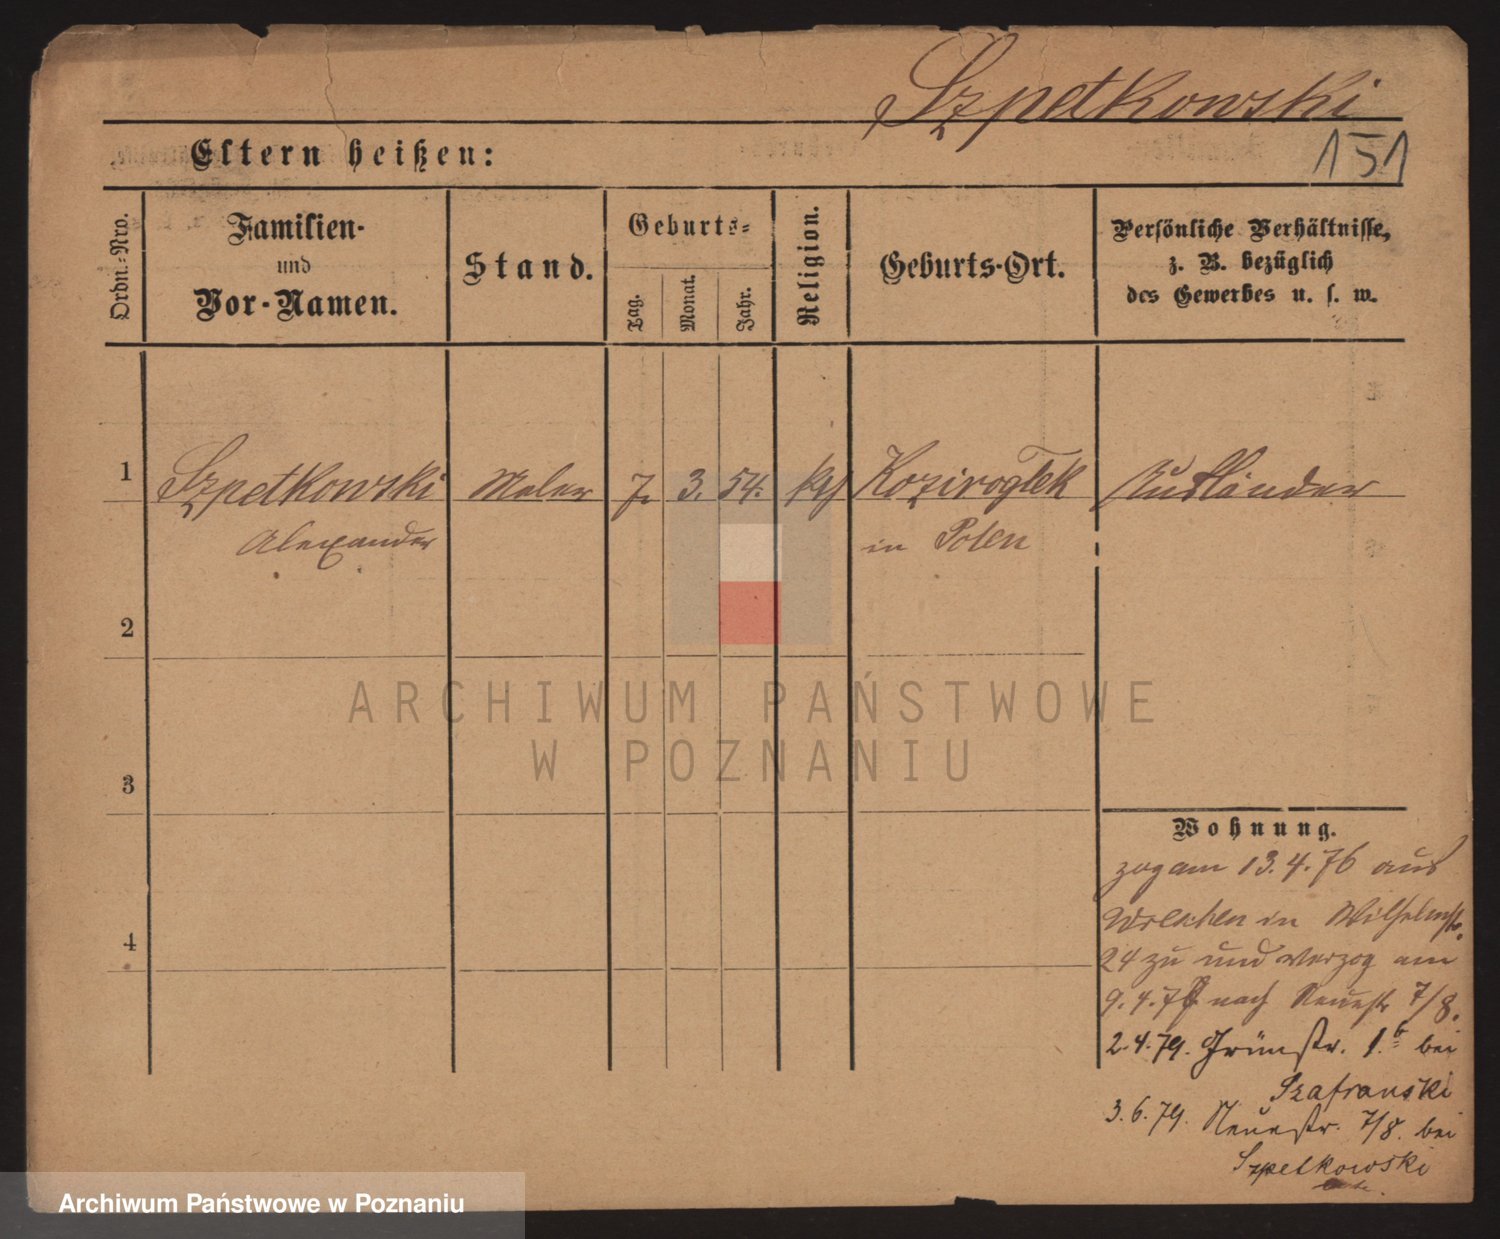 Szpetkowski
Eltern heißen:
151
Ordn.-Nro.
Familien-
und
Vor-Namen.
Stand.
Geburts-
Tag.
Monat.
Jahr.
Religion.
Geburts-Ort.
Persönliche Verhältnisse,
z. B. bezüglich
des Gewerbes u. s. w.
1 Szpetkowski Maler 7. 3. 54. Koziroglek Ausländer
Alexander in Polen
2
3
4
ARCHIWUM PAŃSTWOWE
W POZNANIU
Wohnung.
zog am 13.4.76 aus
Wreschen in Wilhelmstr.
24 zu und verzog am
9.4.78 nach Neuestr 7/8.
2.4.79. Grünstr. 1. bei
Szafranski
3.6.79. Neuestr. 7/8. bei
Szpetkowski
Archiwum Państwowe w Poznaniu